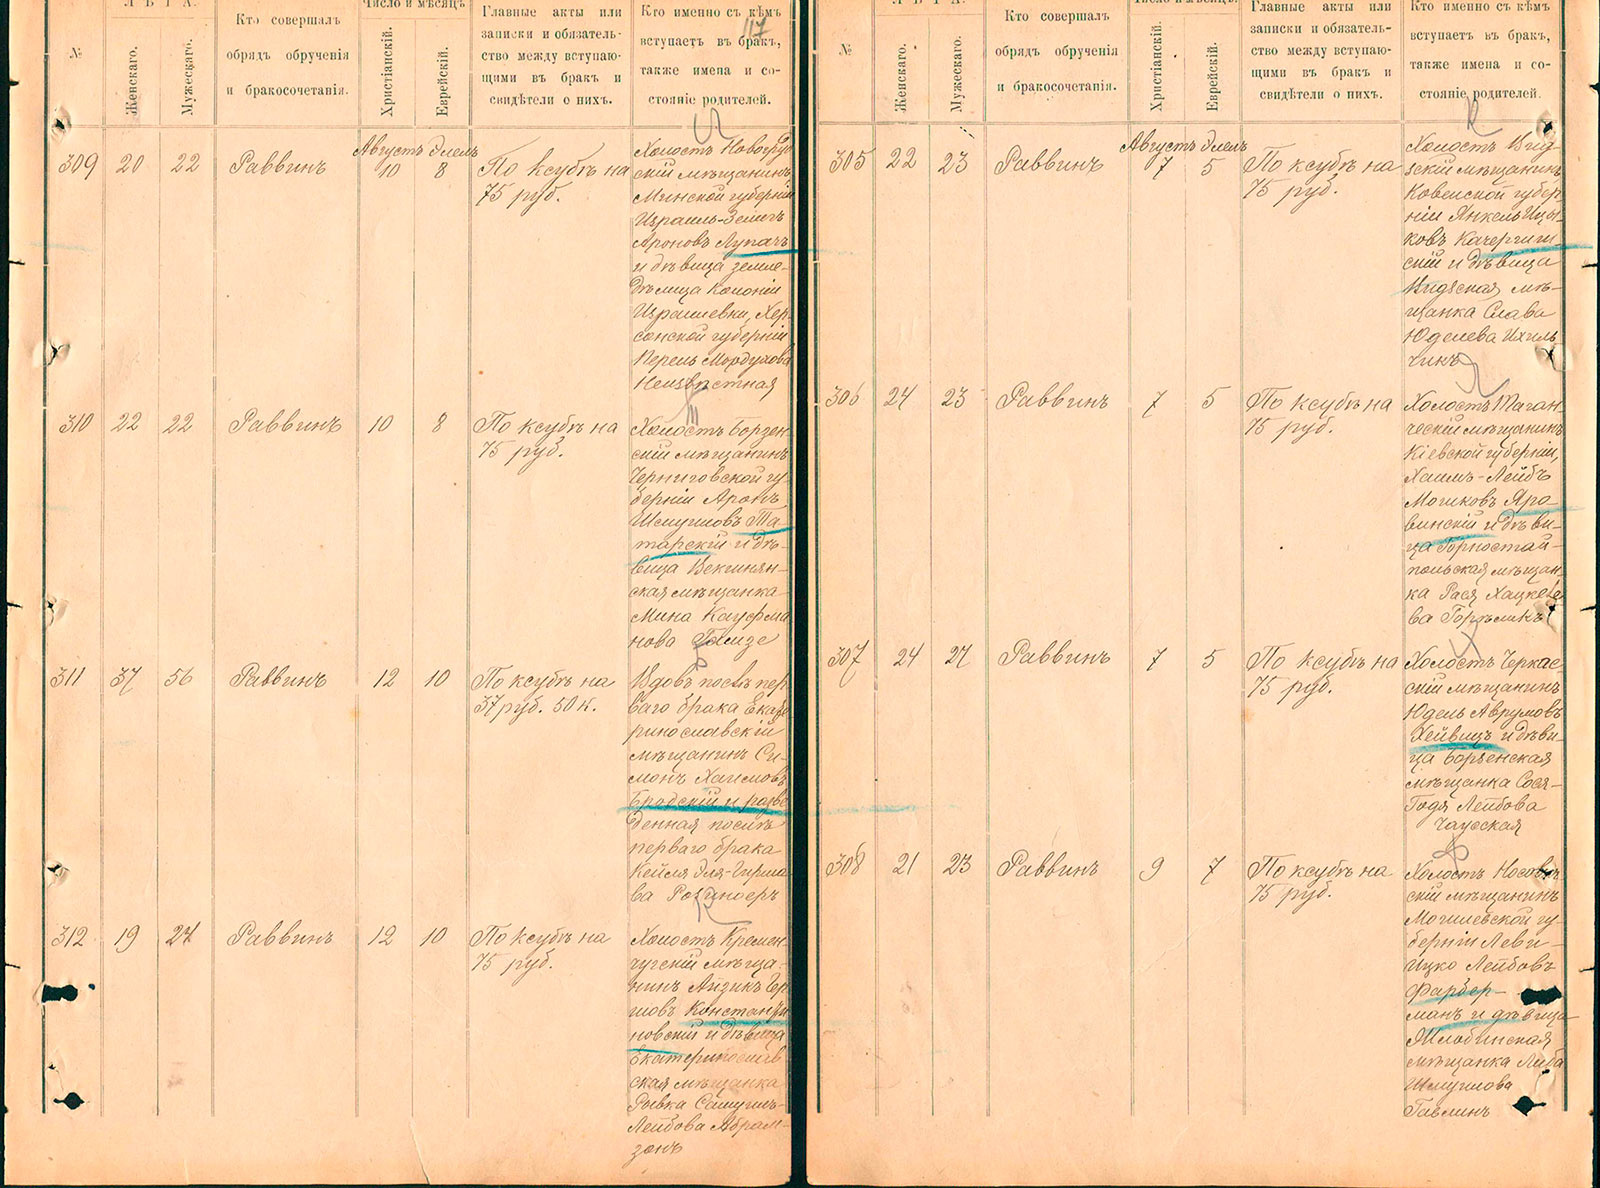 ЛѢТА.
Число и мѣсяцъ
№
Женскаго.
Мужескаго.
Кто совершалъ
обрядъ обрученія
и бракосочетанія.
Христіанскій.
Еврейскій.
Главные акты или
записки и обязатель-
ство между вступаю-
щими въ бракъ и
свидѣтели о нихъ.
Кто именно съ кѣмъ
вступаетъ въ бракъ,
также имена и со-
стояніе родителей.
117
Августъ Элемъ
309 20 22 Раввинъ 10 8
По ксубѣ на
75 руб.
Холостъ Новогруд
скій мѣщанинъ
Минской губерніи
Израиль-Зелигъ
Ароновъ Лупачъ
и дѣвица земле-
дѣлица колоніи
Израилевки, Хер
сонской губерніи
Перель Мордухова
Неизвѣстная
310 22 22 Раввинъ 10 8
По ксубѣ на
75 руб.
Холостъ Борзен
скій мѣщанинъ
Черниговской гу
берніи Аронъ
Шмуиловъ Та
тарскій и дѣ-
вица
ская мѣщанка
Мина Кауфма
нова Гамзе
311 37 56 Раввинъ 12 10
По ксубѣ на
37 руб. 50 к.
Вдовъ послѣ пер
ваго брака Екате
ринославскій
мѣщанинъ Си-
монъ Хаимовъ
Бродскій и разве
денная послѣ
перваго брака
Кейля Эля-Гирша
ва
312 19 24 Раввинъ 12 10
По ксубѣ на
75 руб.
Холостъ Кремен-
чугскій мѣща-
нинъ Айзикъ Гер
шовъ Константи
новскій и дѣвица
Екатеринослав-
ская мѣщанка
Ривка Самуилъ-
Лейбова Абрам-
зонъ
ЛѢТА.
Число и мѣсяцъ.
№
Женскаго.
Мужескаго.
Кто совершалъ
обрядъ обрученія
и бракосочетанія.
Христіанскій.
Еврейскій.
Главные акты или
записки и обязатель-
ство между вступаю-
щими въ бракъ и
свидѣтели о нихъ.
Кто именно съ кѣмъ
вступаетъ въ бракъ,
также имена и со-
стояніе родителей.
К
Августъ Элемъ
305 22 23 Раввинъ 7 5
По ксубѣ на
75 руб.
Холостъ Вид-
зскій мѣщанинъ
Ковенской губер
ніи Янкель Ицы-
ковъ Качергин-
скій и дѣвица
Видзская мѣ-
щанка Слава
Юделева Ихиль
чикъ
Я
306 24 23 Раввинъ 7 5
По ксубѣ на
75 руб.
Холостъ Таган-
ческій мѣщанинъ
Кіевской губерніи,
Хаимъ-Лейбъ
Мошковъ Яро-
винскій и дѣви-
ца Горностай-
польская мѣщан-
ка Рася Хацкеле
ва
Х
307 24 27 Раввинъ 7 5
По ксубѣ на
75 руб.
Холостъ Черкас-
скій мѣщанинъ
Юдель Аврумовъ
Хейвицъ и дѣви-
ца Борзенская
мѣщанка Сося-
Годя Лейбова
Чаусская
Ф
308 21 23 Раввинъ 9 7
По ксубѣ на
75 руб.
Холостъ Носович
скій мѣщанинъ
Могилевской гу-
берніи Леви-
Ицко Лейбовъ
Фарбер-
манъ и дѣвица
Жлобинская
мѣщанка Либа
Шмуилова
Гавлинъ